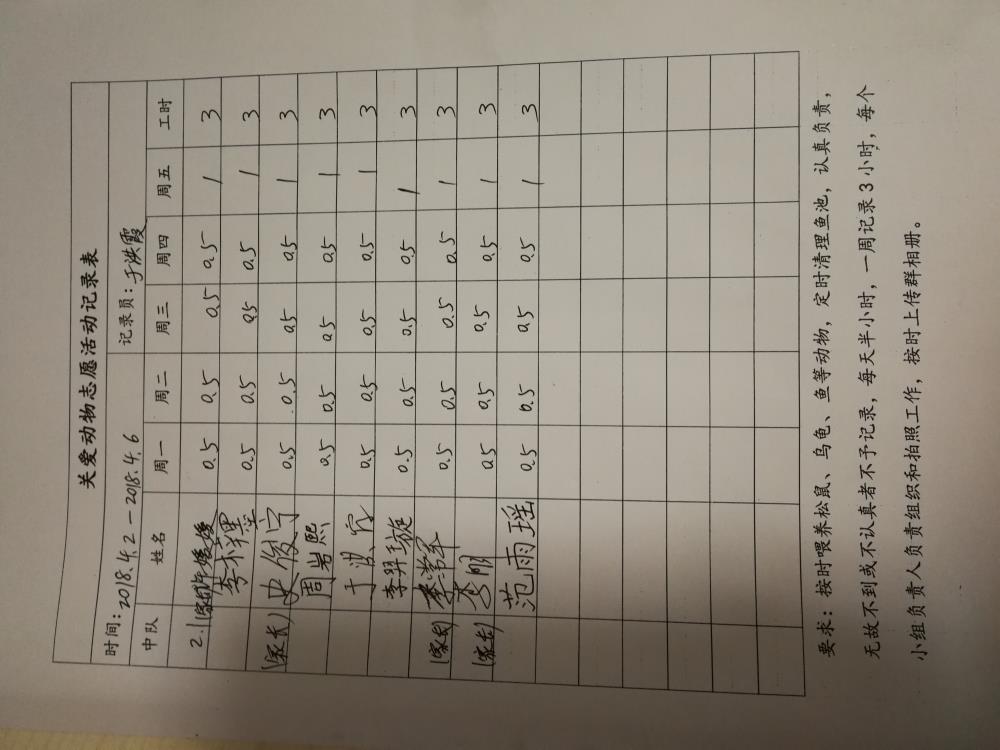 关爱动物志愿活动记录表
时间:2018.4.2—2018.4.6 记录员:于洪霞
中队 姓名 周一 周二 周三 周四 周五 工时
2.1 (家长) 许媛媛 0.5 0.5 0.5 0.5 1 3
李木樨 0.5 0.5 0.5 0.5 1 3
(家长) 史俊宁 0.5 0.5 0.5 0.5 1 3
周岩熙 0.5 0.5 0.5 0.5 1 3
于洪 0.5 0.5 0.5 0.5 1 3
李羿璇 0.5 0.5 0.5 0.5 1 3
(家长) 李军 0.5 0.5 0.5 0.5 1 3
(家长) 李明 0.5 0.5 0.5 0.5 1 3
范雨瑶 0.5 0.5 0.5 0.5 1 3
要求:按时喂养松鼠、乌龟、鱼等动物,定时清理鱼池,认真负责,
无故不到或不认真者不予记录,每天半小时,一周记录3小时,每个
小组负责人负责组织和拍照工作,按时上传群相册。